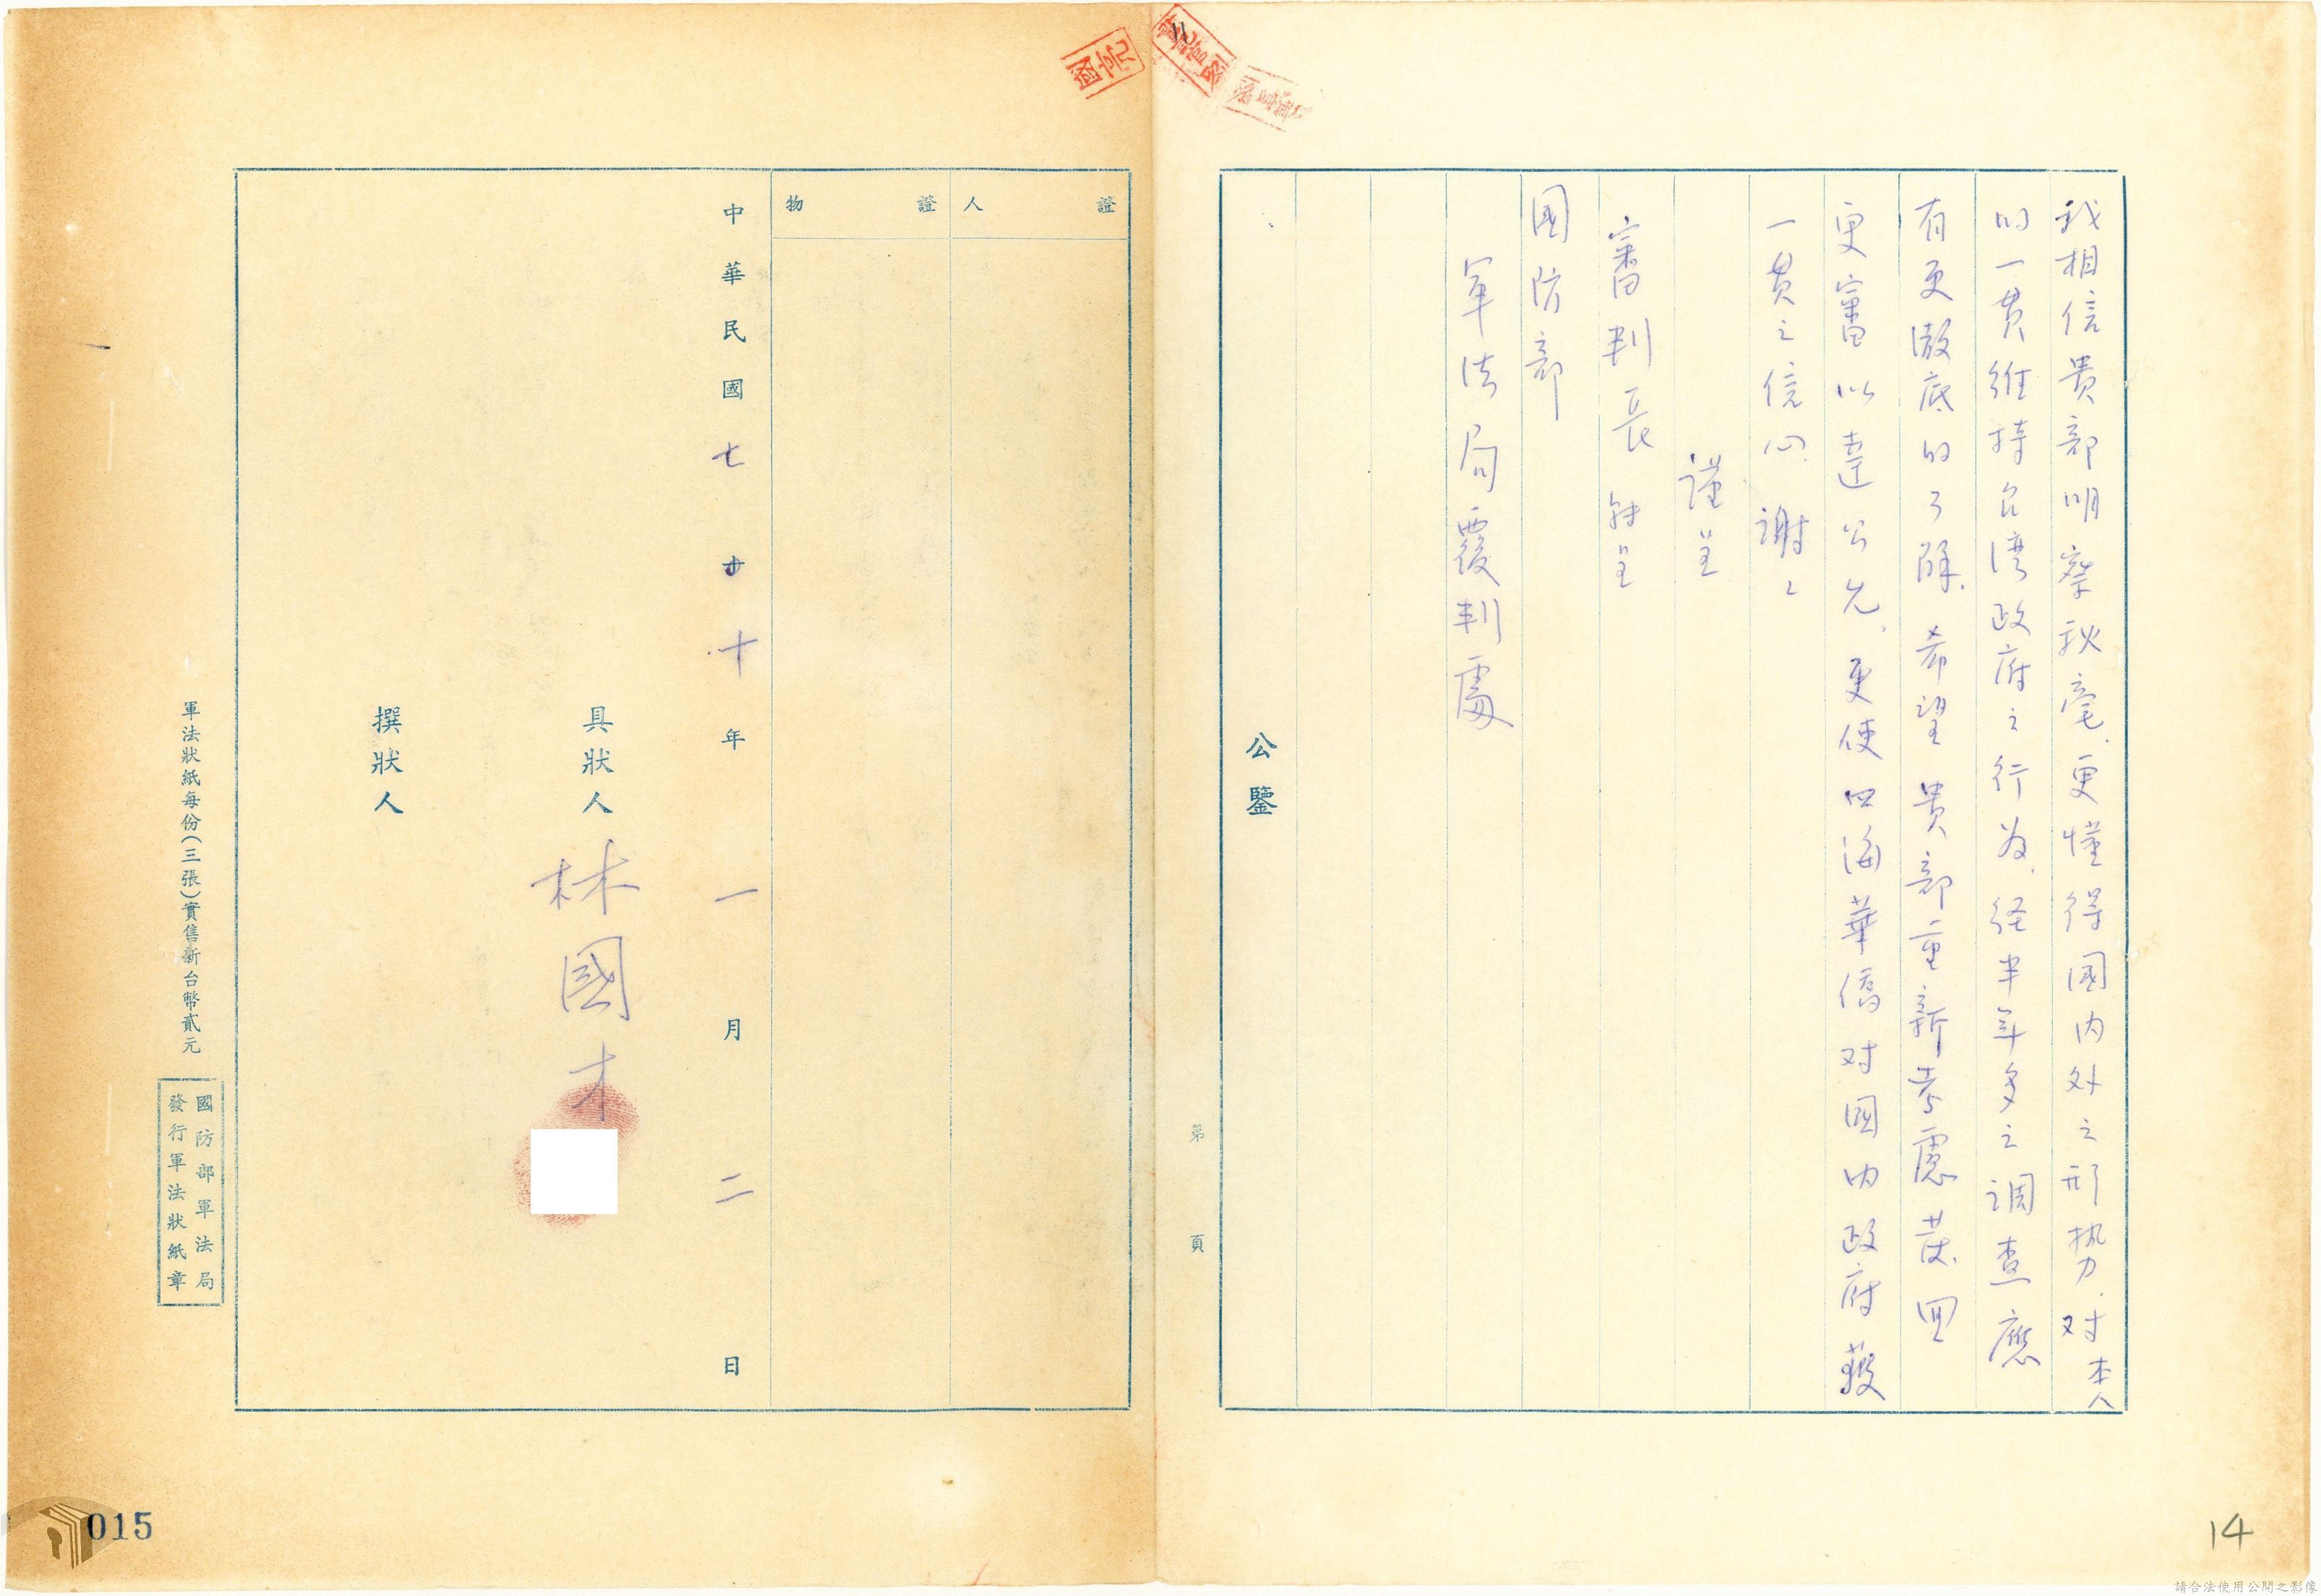 我相信贵部明察秋毫.更懂得國内外之形势.对本人
的一贯维持台湾政府之行为.经半年多之調查應
有更澈底的了解.希望贵部重新考慮茂.回
更審以達公允.更使四海華僑对國内政府獲
一贯之信心.謝〻
謹呈
審判長 轉呈
國防部
軍法局覆判處
公鑒
第 頁
證人
證物
中華民國七十年一月二日
具狀人 林國才
撰狀人
軍法狀紙每份(三張)實售新台幣貳元
國防部軍法局
發行軍法狀紙章
015
14
請合法使用公開之影像